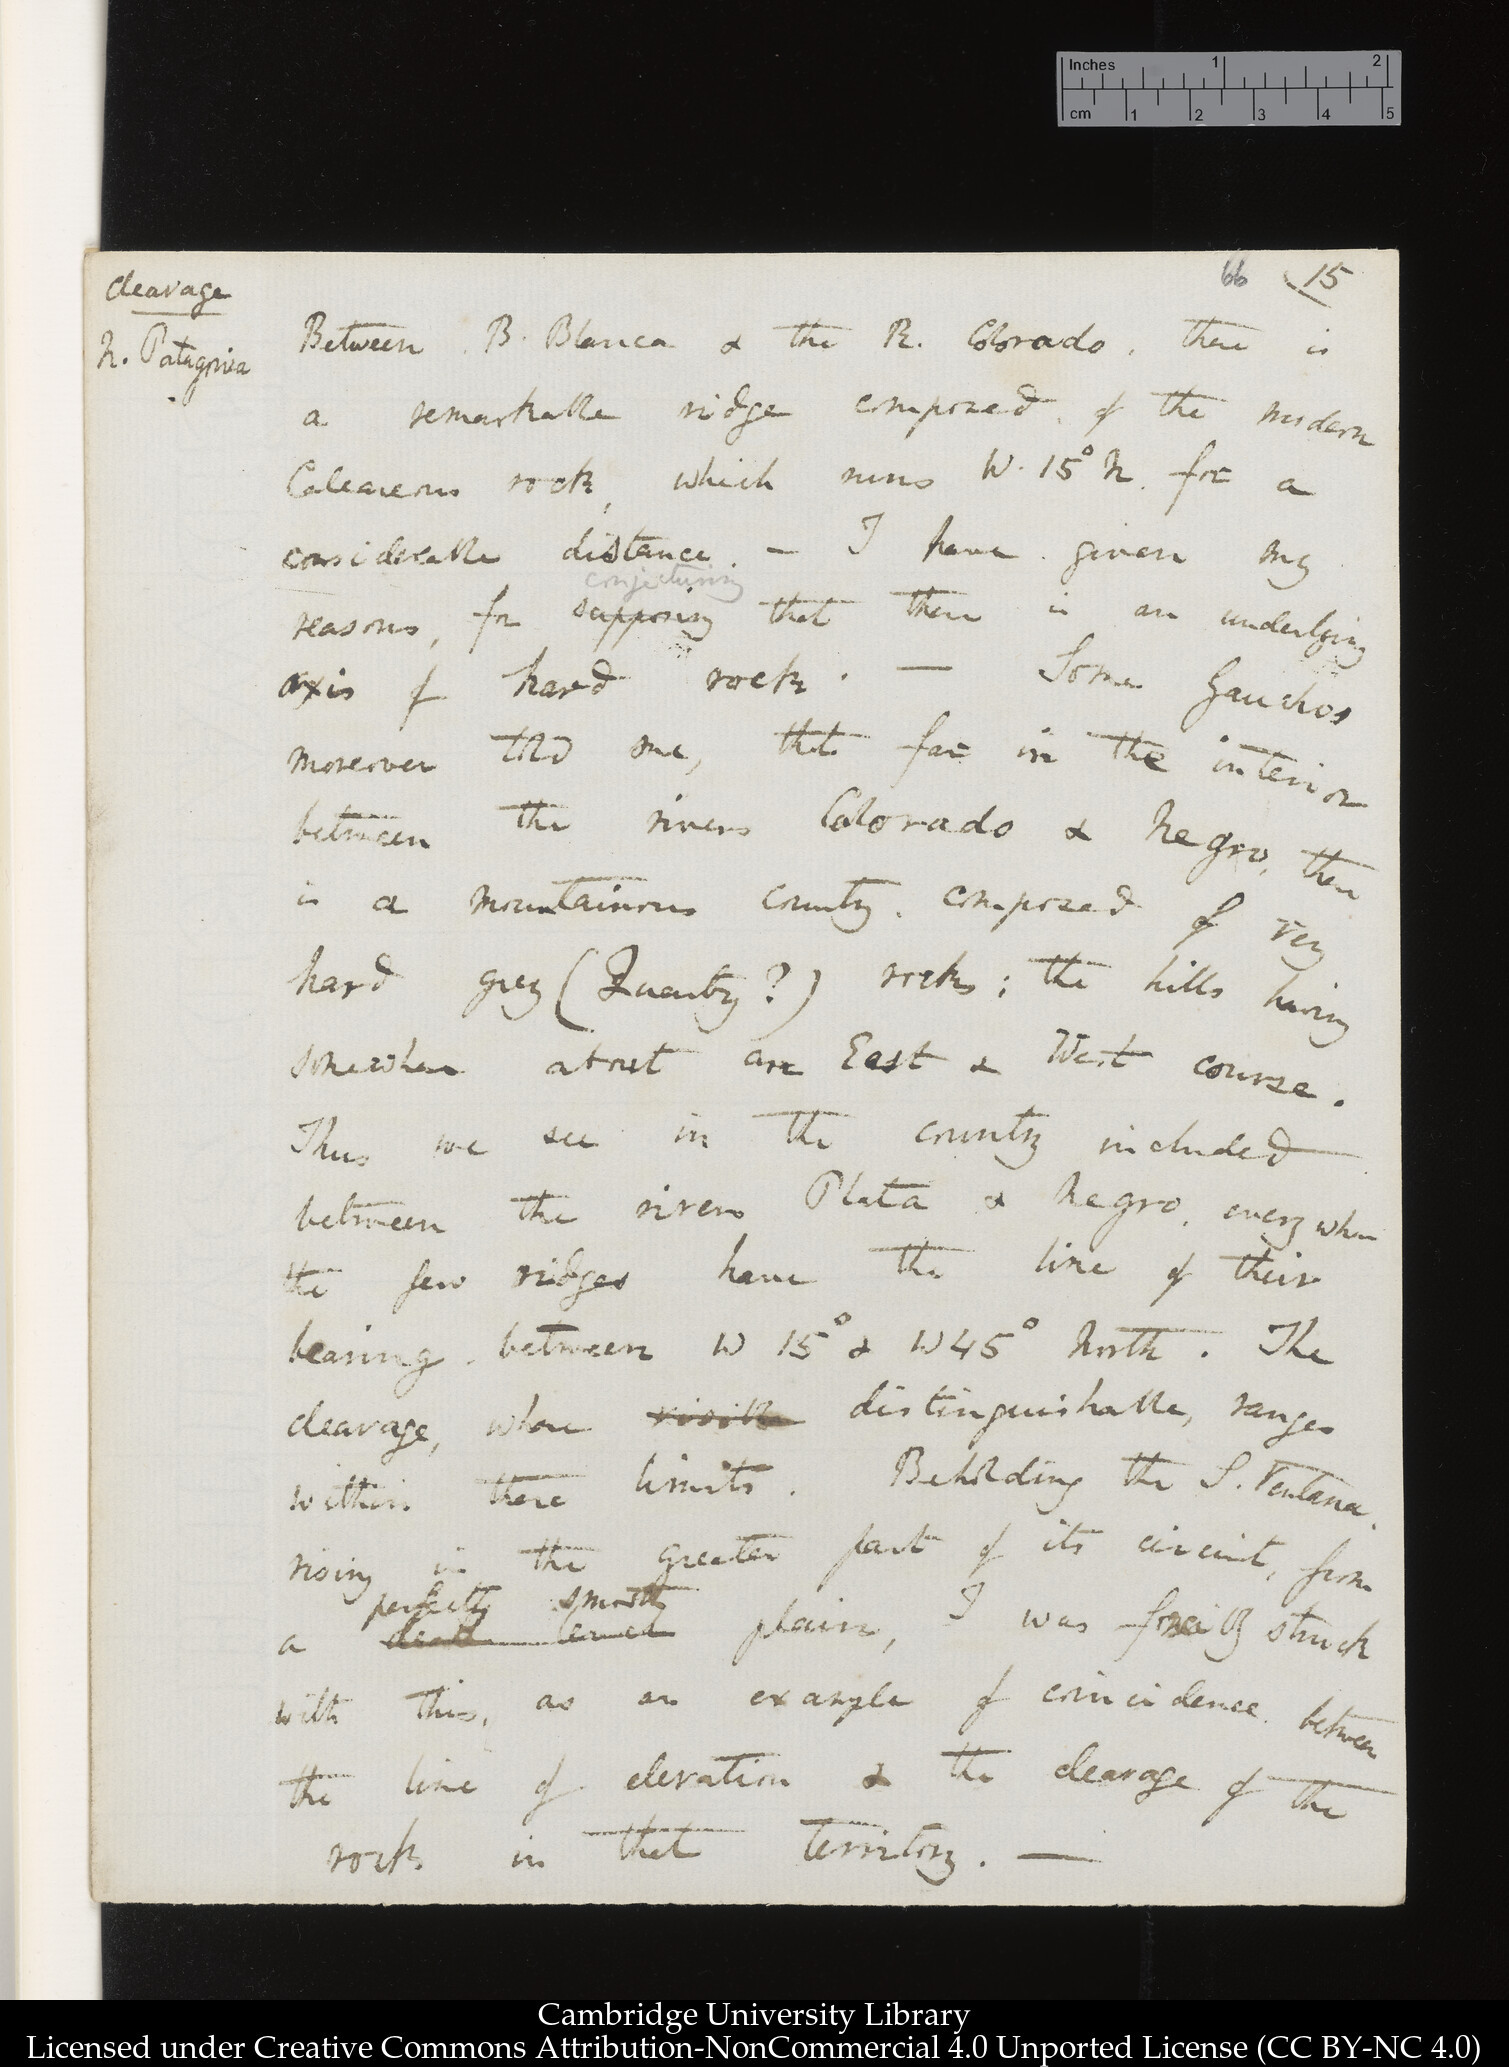 Inches 1 2
cm 1 2 3 4 5
66 15
Cleavage
N. Patagonia
Between B. Blanca & the R. Colorado, there is
a remarkable ridge composed of the modern
Calcareous rock, which runs W. 15° N. for a
considerable distance. — I have given my
conjecturing
reasons, for supposing that there is an underlying
axis of hard rock. — Some Gauchos
moreover told me, that far in the interior
between the rivers Colorado & Negro, there
is a mountainous country, composed of very
hard grey (Quartz?) rocks; the hills having
somewhere about an East & West course.
Thus we see in the country included
between the rivers Plata & Negro, every where
the few ridges have the line of their
bearing between W 15° & W 45° North. The
cleavage, where visible distinguishable, ranges
within these limits. Beholding the S. Ventana,
rising in the greater part of its circuit, from
perfectly smooth
a dead level plain, I was forcibly struck
with this, as an example of coincidence between
the line of elevation & the cleavage of the
rocks in that territory. —
Cambridge University Library
Licensed under Creative Commons Attribution-NonCommercial 4.0 Unported License (CC BY-NC 4.0)